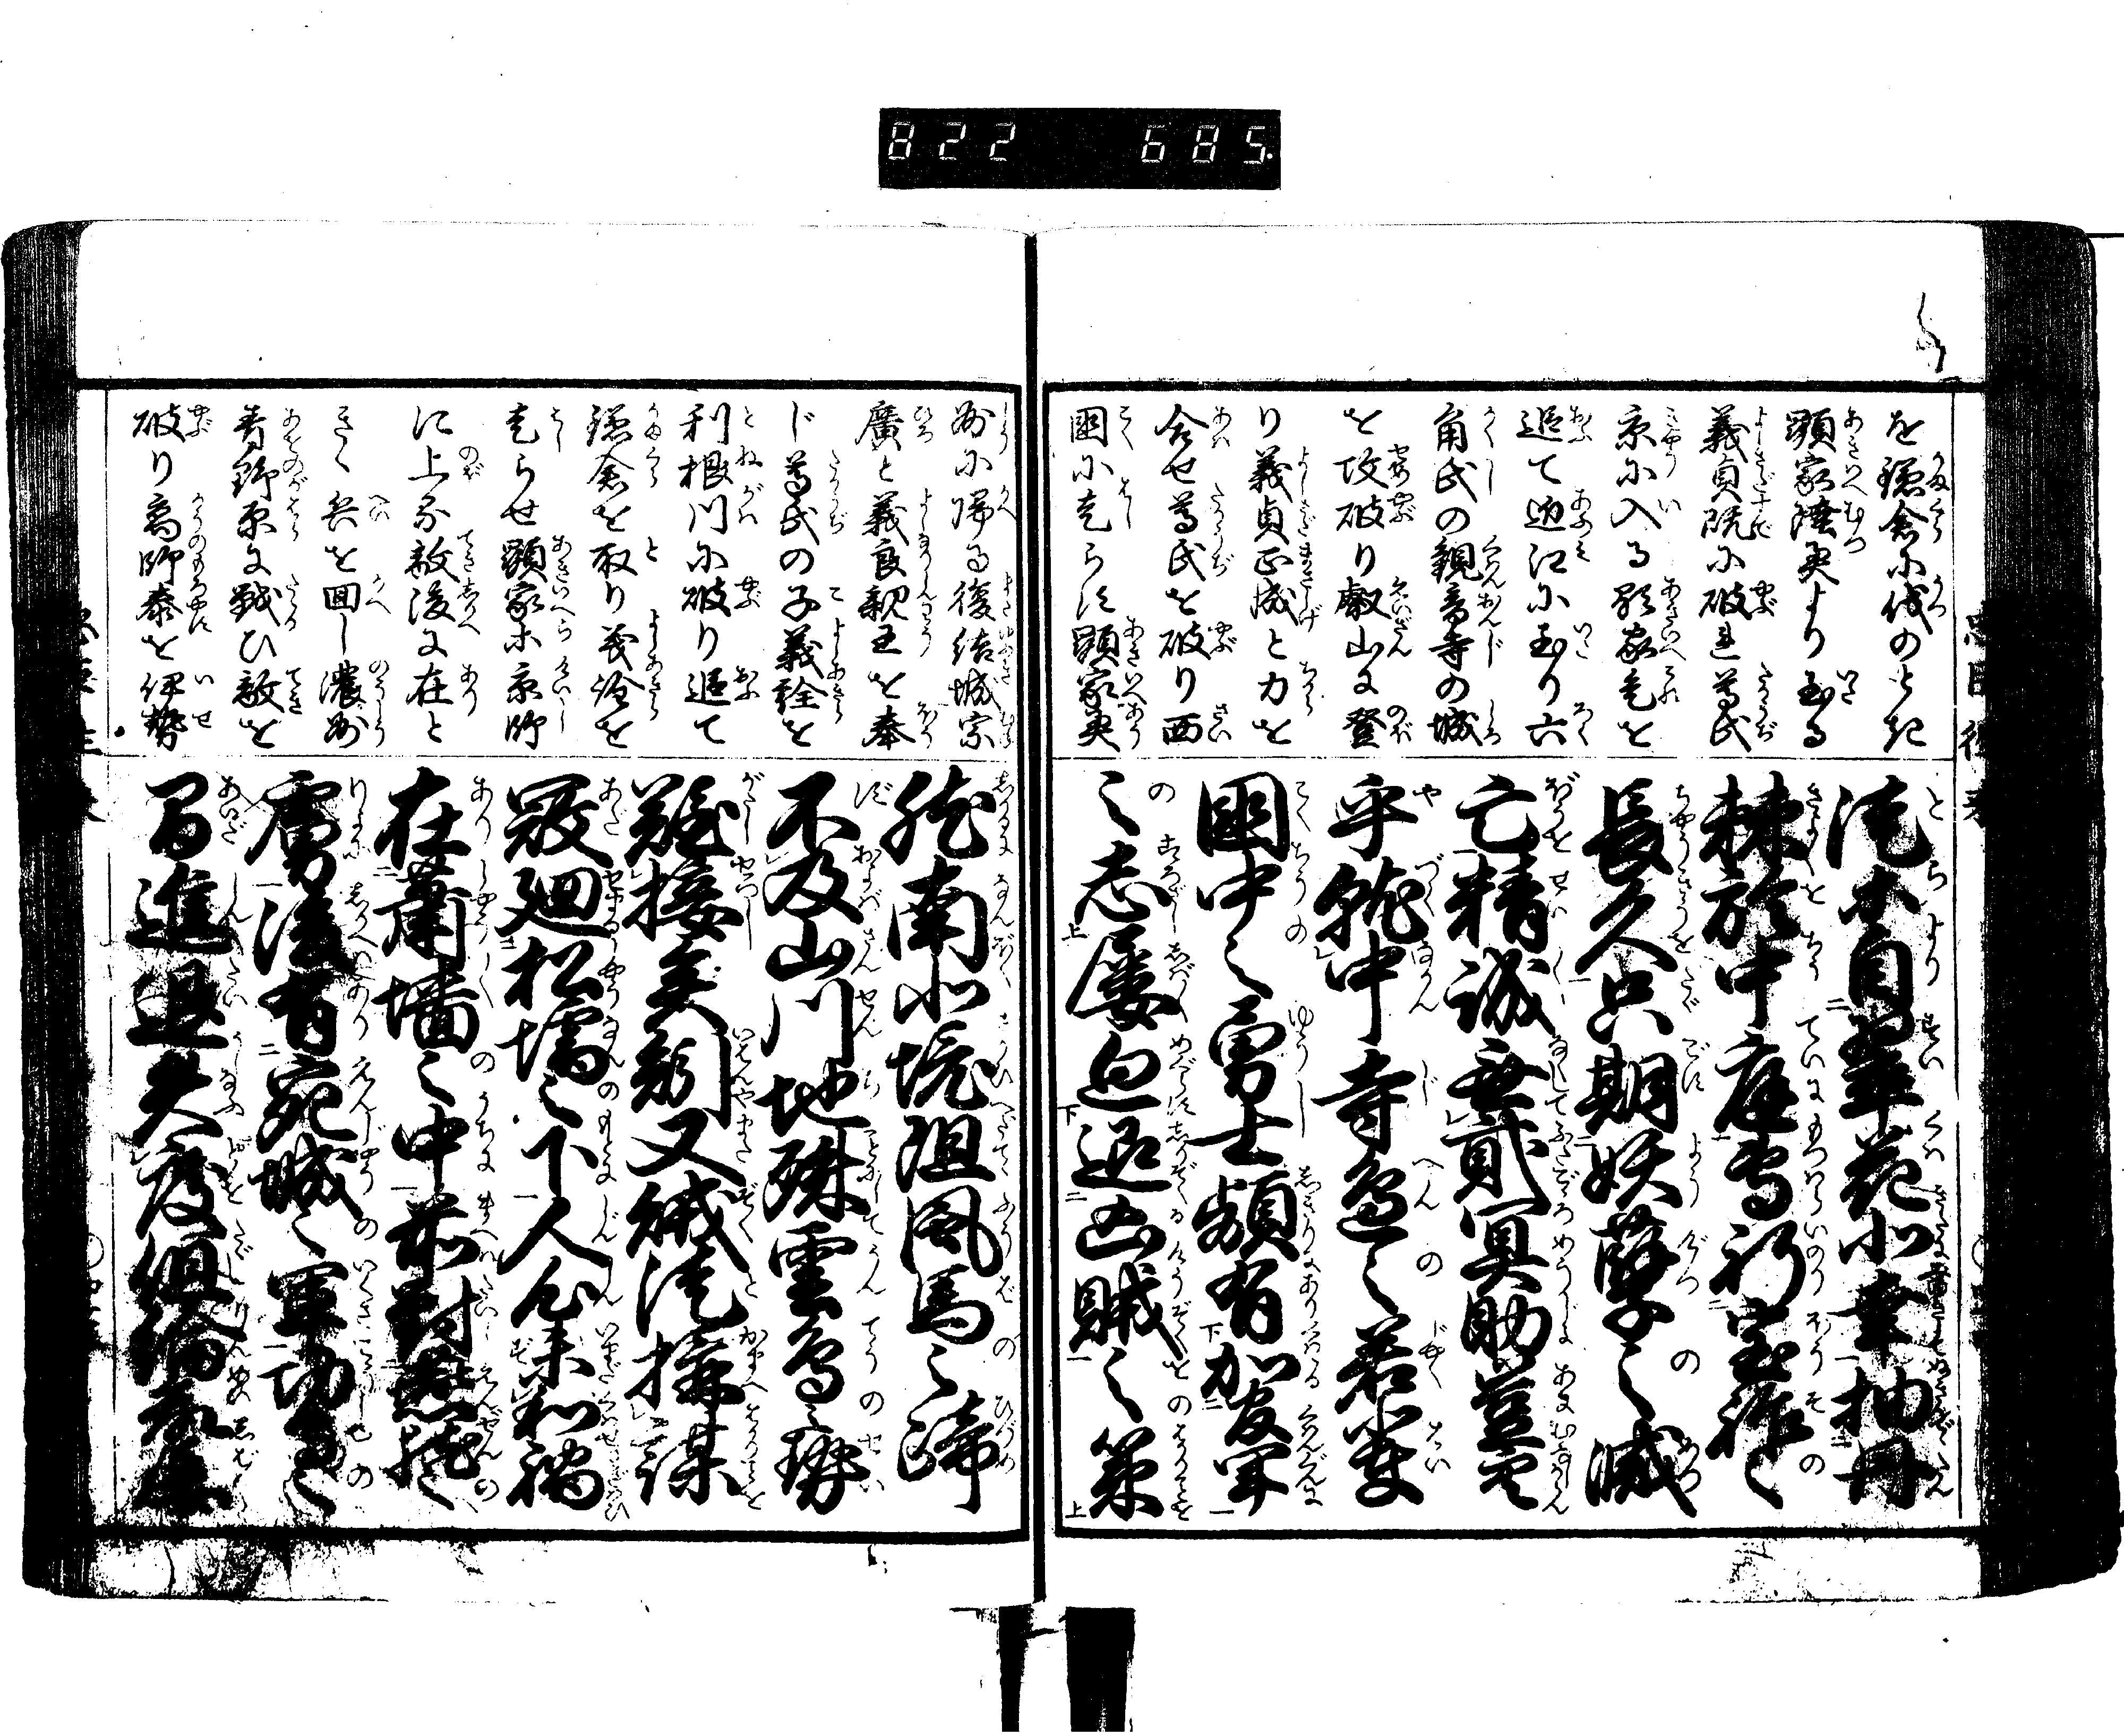 822 685
を鎌倉に伐のとき
顕家陸奥より到る
義貞既に破れ尊氏
京に入る顕家之を
追て近江に到り六
角氏の観音寺の城
を攻破り叡山に登
り義貞正成と力を
合せ尊氏を破り西
国に走らす顕家奥
徒等自翠花北幸抽丹
棘於中庭専祈宝祚之
長久只期妖孽之滅
亡精誠無貳冥助豈空
乎就中寺辺之若輩
国中之勇士頻有加官軍
之志屡廻退凶賊之策
州に帰る後結城宗
廣と義良親王を奉
じ尊氏の子義詮を
利根川に破り追て
鎌倉を取り義詮を
走らせ顕家等京師
に上る敵後に在と
きく兵を回し濃州
青野原に戦ひ敵を
破り高師泰を伊勢
然南北境阻風馬之蹄
不及山川地殊雲鳥之勢
難接矣矧又賊徒構謀
廻松之下人心未和禍
在蕭墻之中前対燕然之
虜後有宛城之軍功之
間進退失度